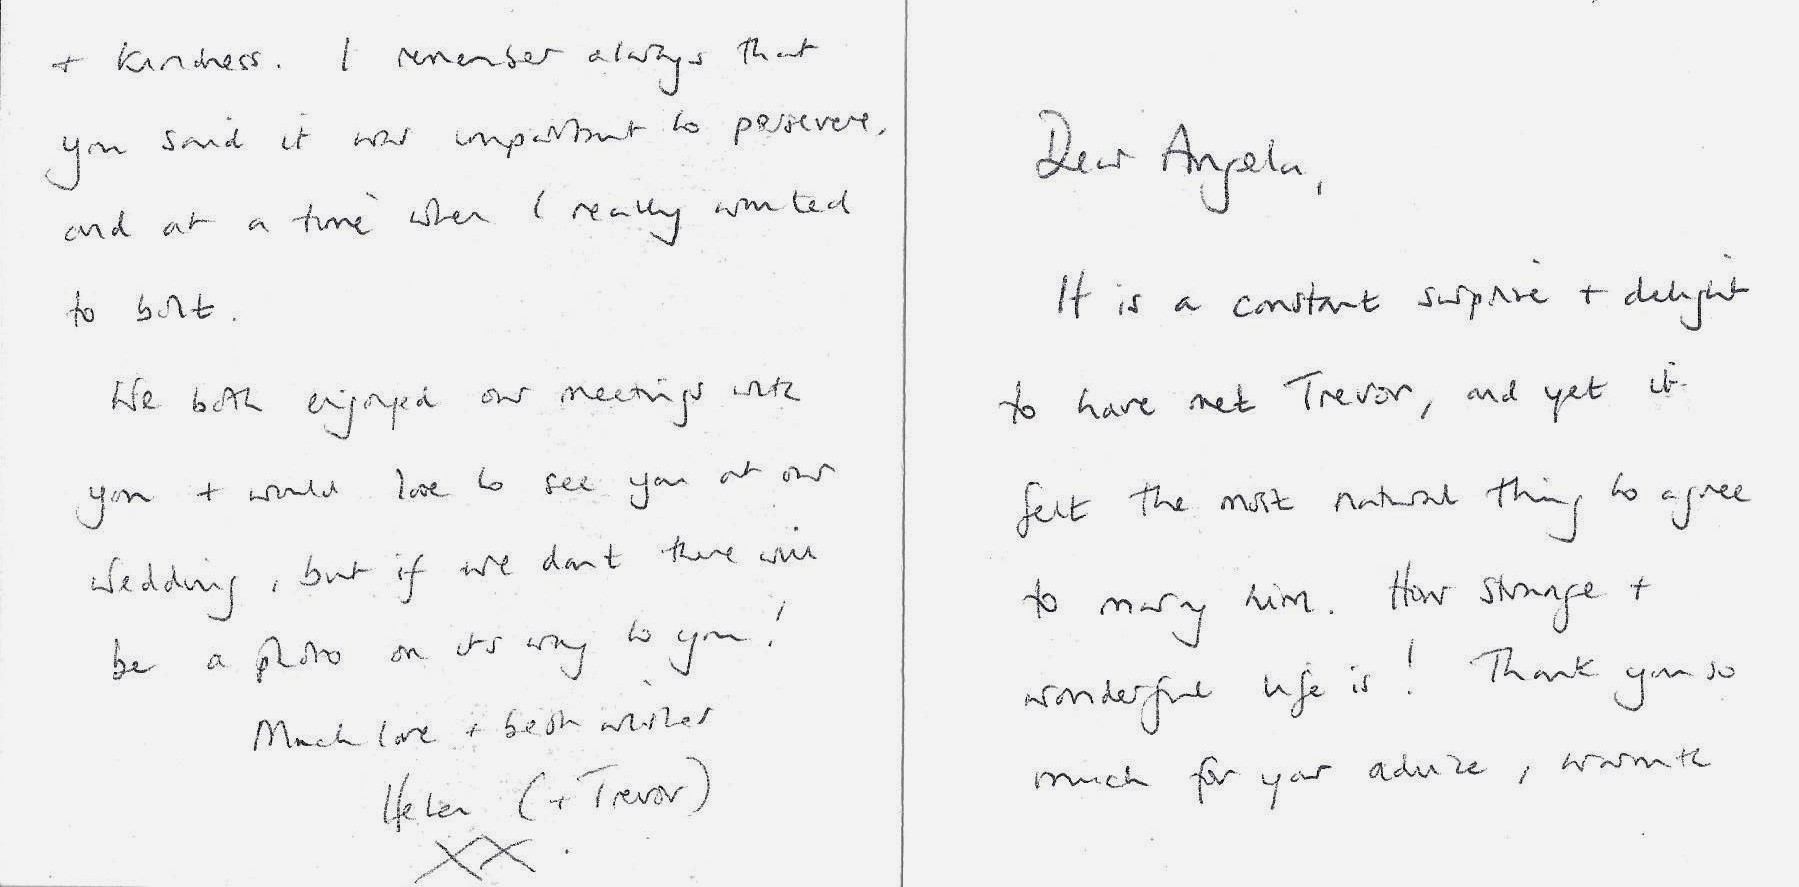 Dear Angela,
It is a constant surprise + delight
to have met Trevor, and yet it
felt the most natural thing to agree
to marry him. How strange +
wonderful life is! Thank you so
much for your advice, warmth
+ kindness. I remember always that
you said it was important to persevere,
and at a time when I really wanted
to bolt.
We both enjoyed our meetings with
you + would love to see you at our
wedding, but if we dont there will
be a photo on its way to you!
Much love + best wishes
Helen (+ Trevor)
XX.